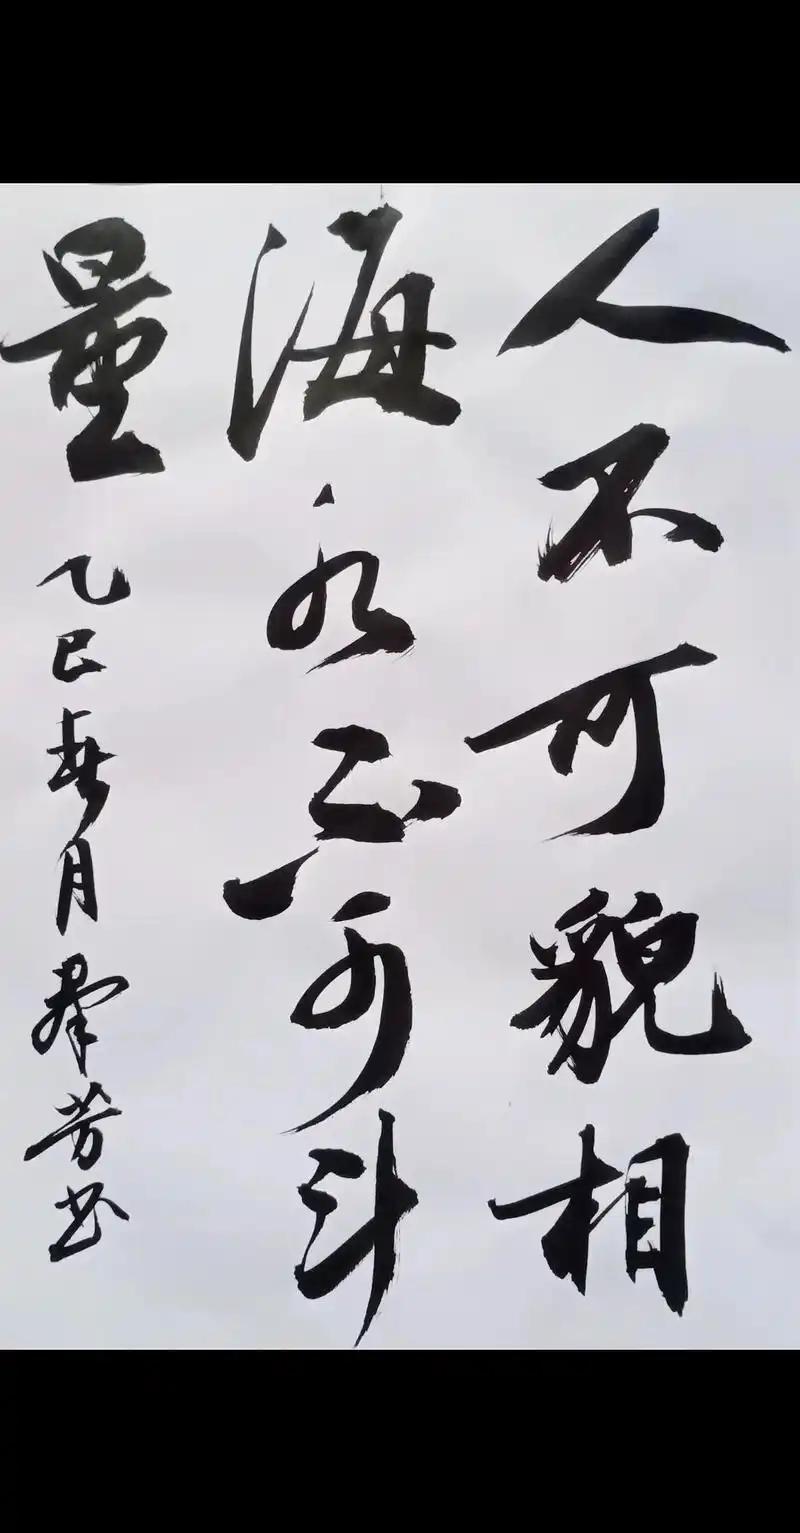 人不可貌相
海水不可斗
量 乙巳春月群芳书